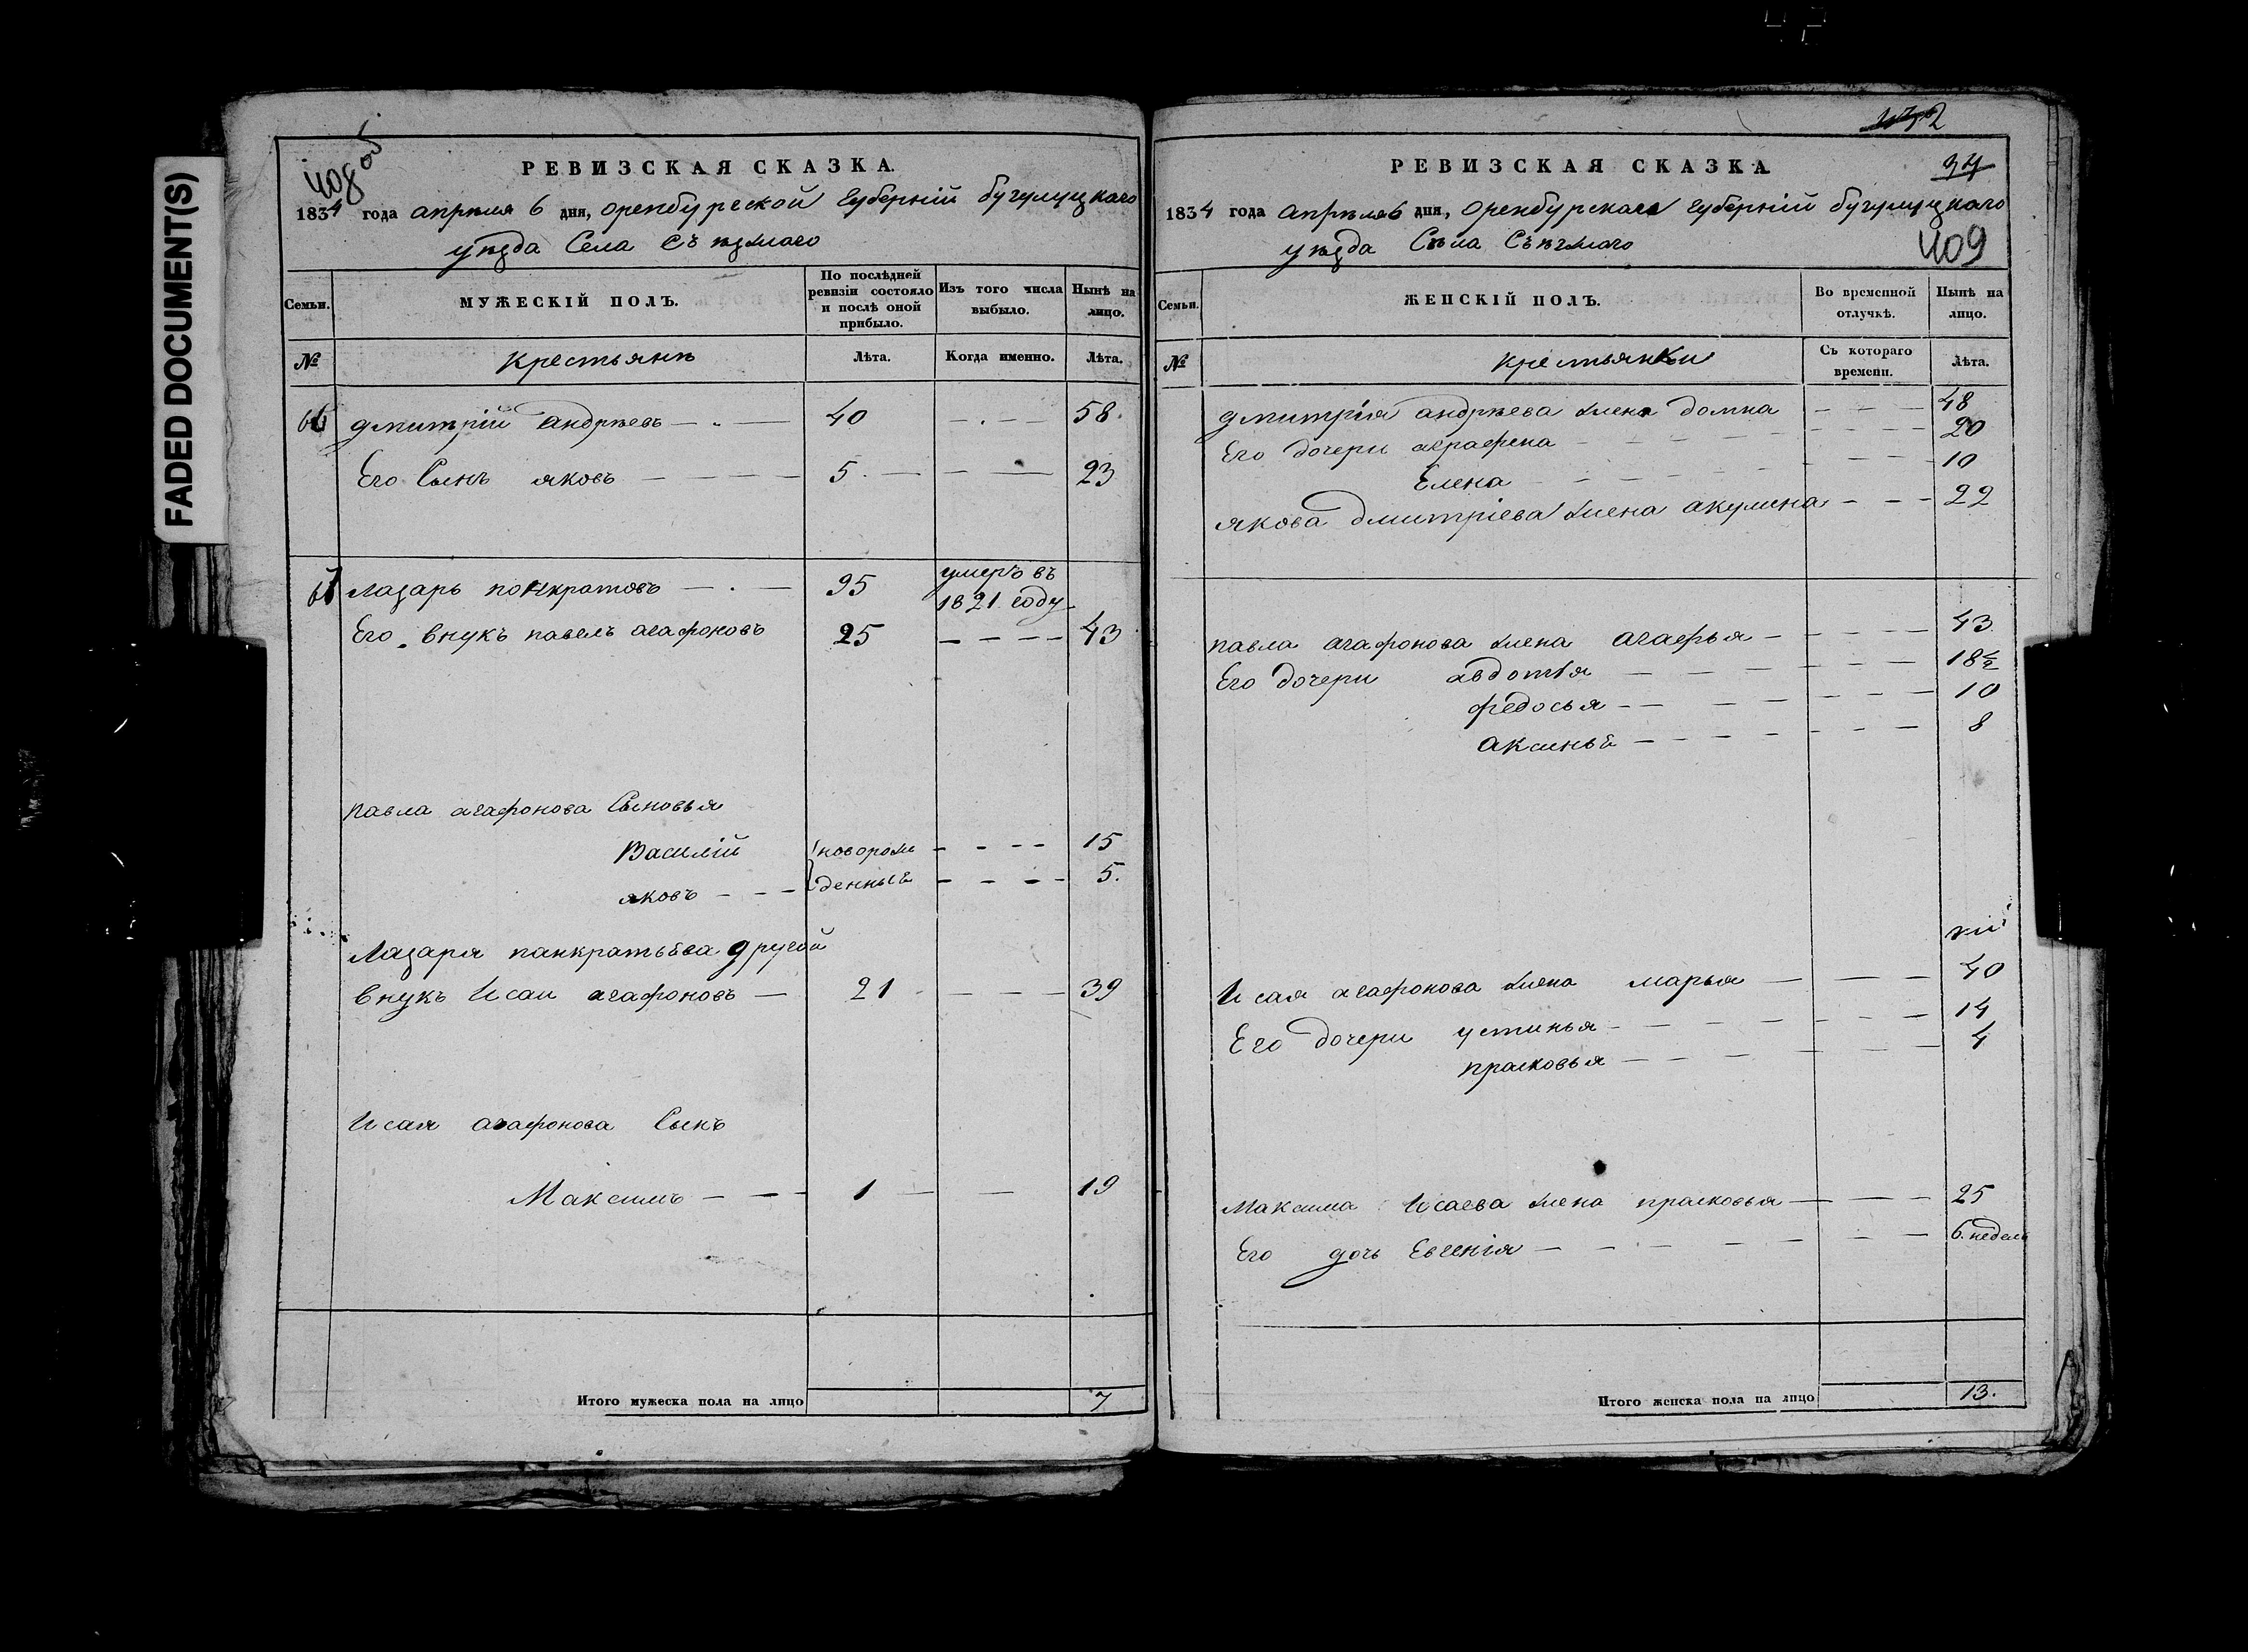 FADED DOCUMENT(S)
408 об
РЕВИЗСКАЯ СКАЗКА.
1834 года апреля 6 дня, оренбургской губерніи бугулуцкаго
уѣзда Села Съѣзжаго
Семьи.
МУЖЕСКІЙ ПОЛЪ.
По послѣдней ревизіи состояло и послѣ оной прибыло.
Изъ того числа выбыло.
Нынѣ на лицо.
№
Крестьянѣ
Лѣта.
Когда именно.
Лѣта.
66 дмитрій андрѣевъ 40 58.
Его Сынъ яковъ 5 23
67 лазарь понкратовъ 95 умеръ въ 1821 году
Его внукъ павелъ агафоновъ 25 43
павла агафонова Сыновья
Василій новорож 15
яковъ денные 5.
Лазаря панкратьева другой
внукъ Исаи агафоновъ 21 39
Исая агафонова Сынъ
Максимъ 1 19
Итого мужеска пола на лицо 7
34
409
РЕВИЗСКАЯ СКАЗКА
1834 года апрѣля 6 дня, Оренбургскага губерніи бугулуцкаго
уѣзда Сѣла Съѣзжаго
Семьи.
ЖЕНСКІЙ ПОЛЪ.
Во временной отлучкѣ.
Нынѣ на лицо.
№
крестьянки
Съ котораго времени.
Лѣта.
дмитрія андрѣева жена домна 48
Его дочери аграфена 20
Елена 10
якова дмитріева жена акулина 22
павла агафонова жена агафья 43
Его дочери авдотья 18½
федосья 10
аксинье 8
Исая агафонова жена марья 40
Его дочери устинья 14
прасковья 4
Максима Исаева жена прасковья 25
Его дочь Евгенія 6. недель
Итого женска пола на лицо 13.